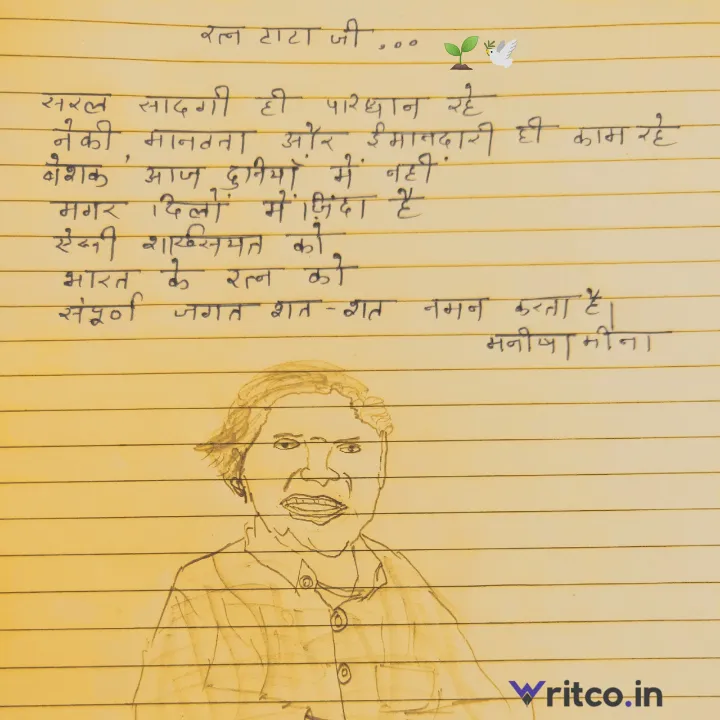 रत्न टाटा जी ...
सरल सादगी ही परिधान रहे
नेकी, मानवता और ईमानदारी ही काम रहे
बेशक आज दुनियाँ में नहीं
मगर दिलों में ज़िंदा है
ऐसी शख्सियत को
भारत के रत्न को
संपूर्ण जगत शत-शत नमन करता है।
मनीषा मीना
Writco.in